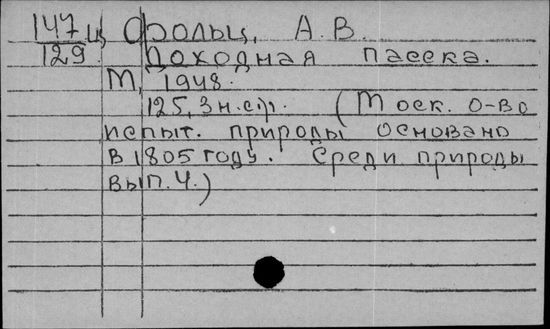 147ц Фрольц, А. В.
129 Доходная пасека.
М, 1948.
125, 3 н.с.р. (Моск. о-во
испыт. природы основано
в 1805 году. Среди природы
вып. 4.)